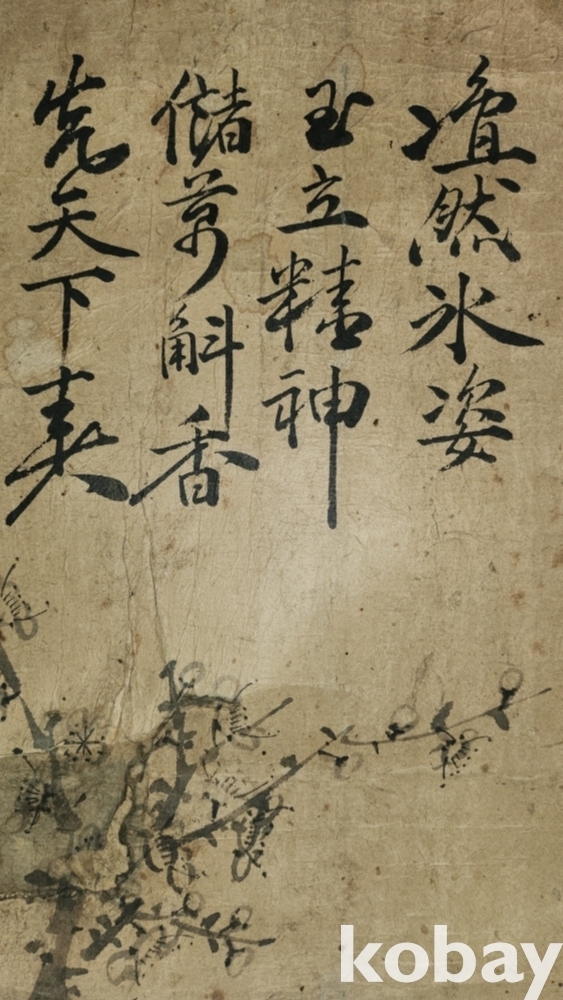 凝然氷姿
玉立精神
儲萬斛香
先天下春
kobay